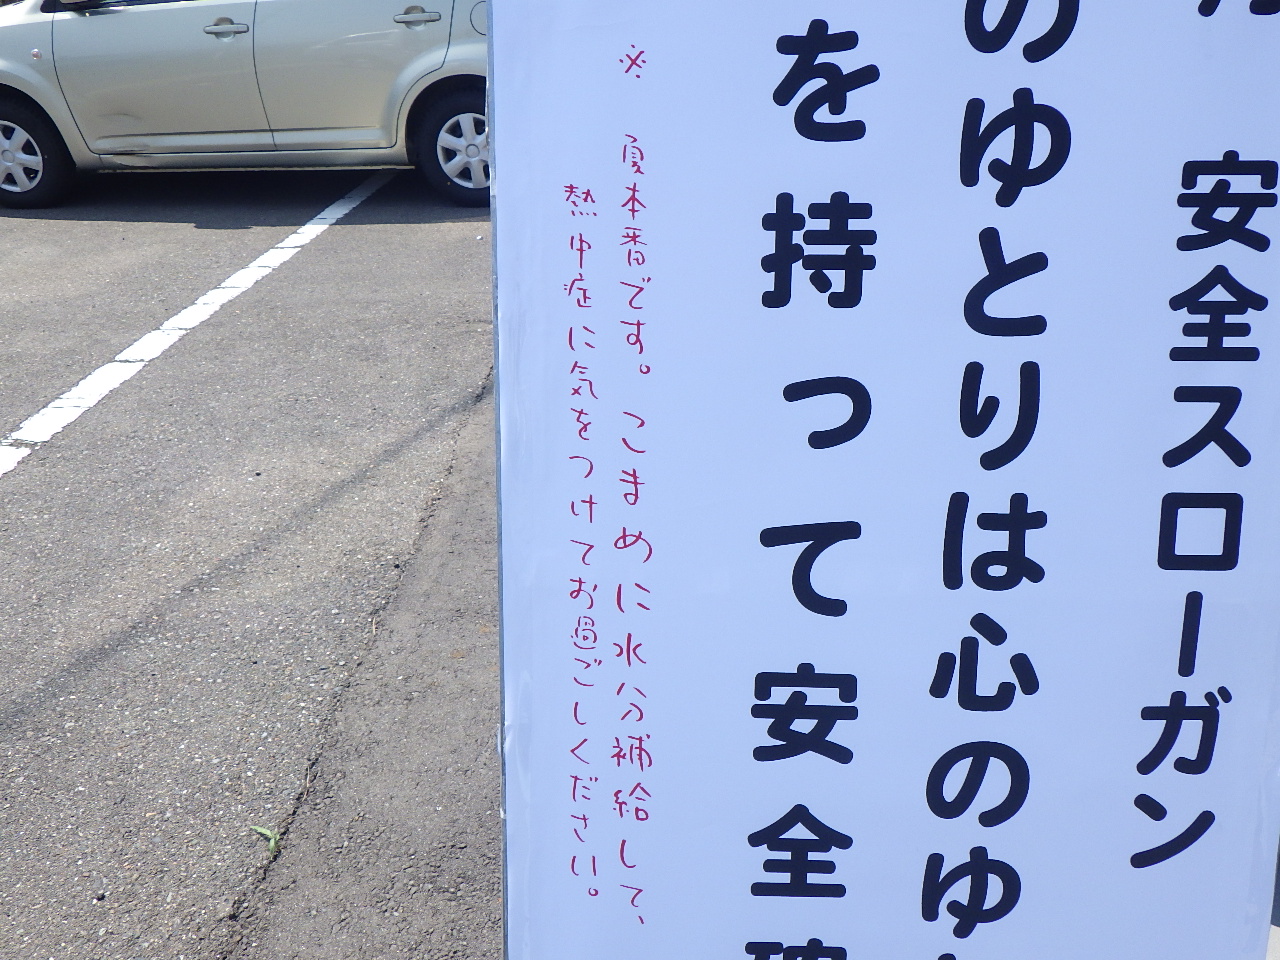 安全スローガン
のゆとりは心のゆ
を持って安全確
※ 夏本番です。こまめに水分補給して、
熱中症に気をつけてお過ごしください。